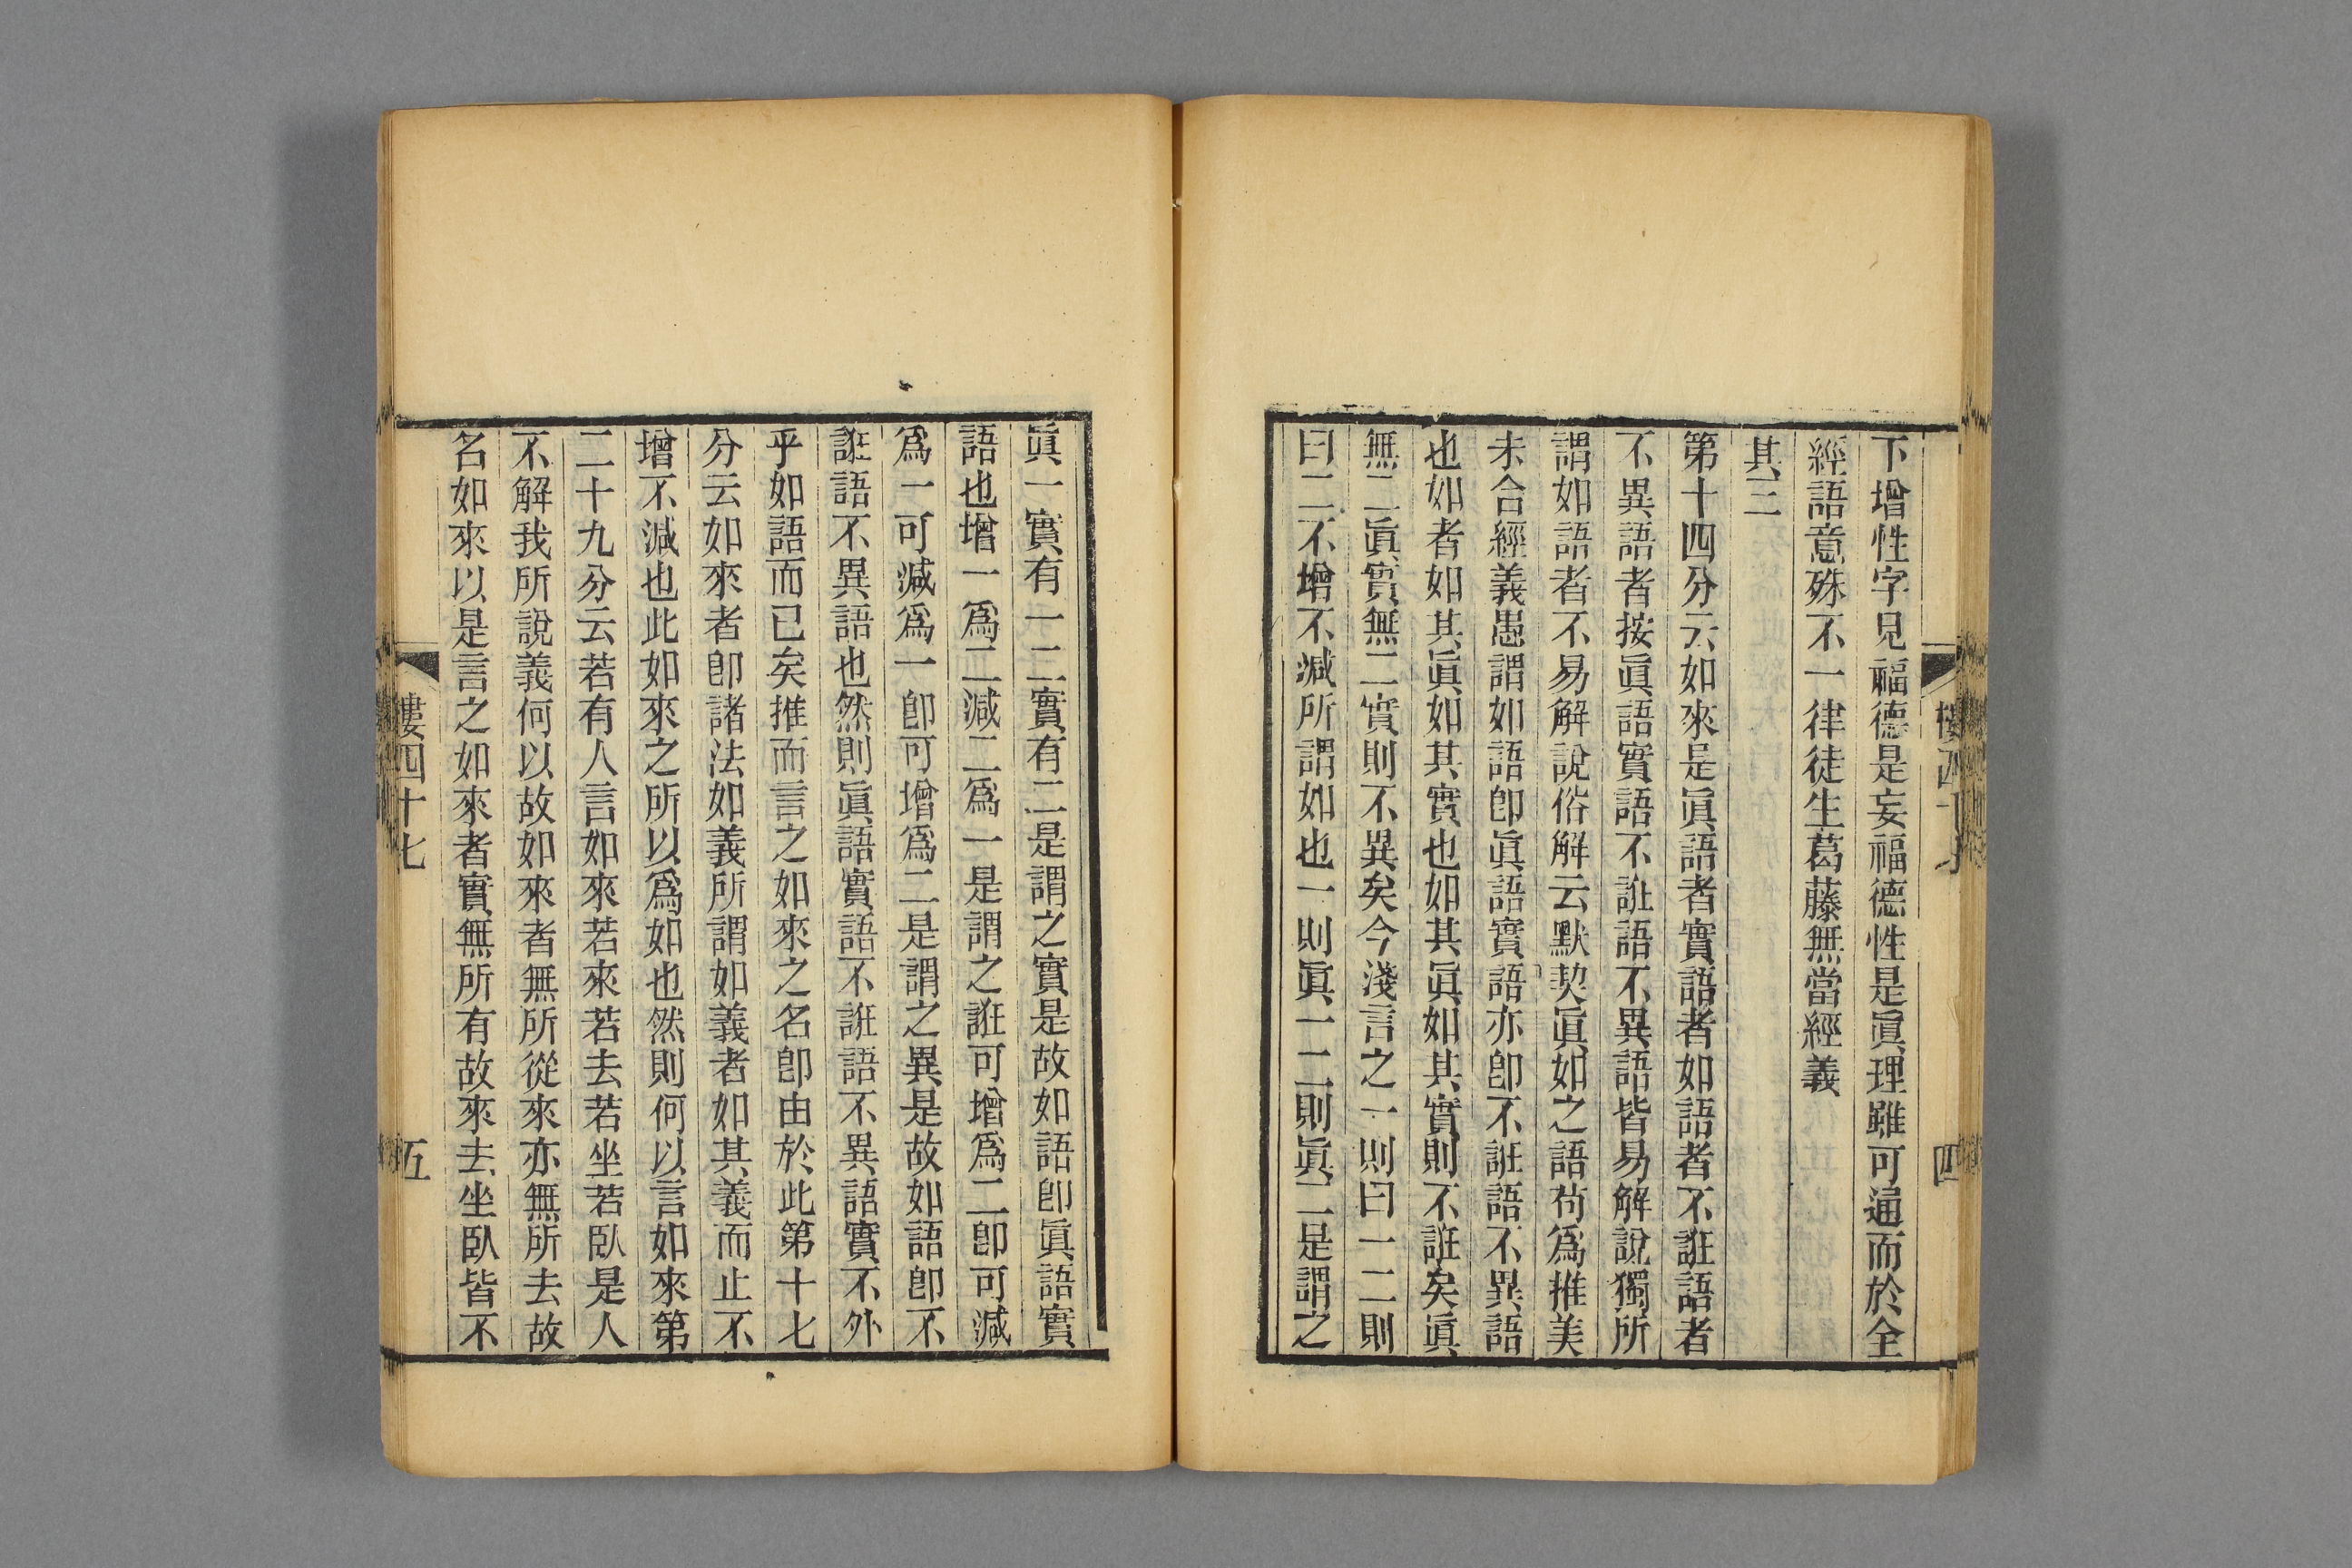 下增性字見福德是妄福德性是眞理雖可通而於全
經語意殊不一律徒生葛藤無當經義
其三
第十四分云如來是眞語者實語者如語者不誑語者
不異語者按眞語實語不誑語不異語皆易解說獨所
謂如語者不易解說俗解云默契眞如之語苟爲推美
未合經義愚謂如語卽眞語實語亦卽不誑語不異語
也如者如其眞如其實也如其眞如其實則不誑矣眞
無二眞實無二實則不異矣今淺言之一則曰一二則
曰二不增不減所謂如也一則眞一二則眞二是謂之
眞一實有一二實有二是謂之實是故如語卽眞語實
語也增一爲二減二爲一是謂之誑可增爲二卽可減
爲一可減爲一卽可增爲二是謂之異是故如語卽不
誑語不異語也然則眞語實語不誑語不異語實不外
乎如語而已矣推而言之如來之名卽由於此第十七
分云如來者卽諸法如義所謂如義者如其義而止不
增不減也此如來之所以爲如也然則何以言如來第
二十九分云若有人言如來若來若去若坐若臥是人
不解我所說義何以故如來者無所從來亦無所去故
名如來以是言之如來者實無所有故來去坐臥皆不
樓四十七
五
四